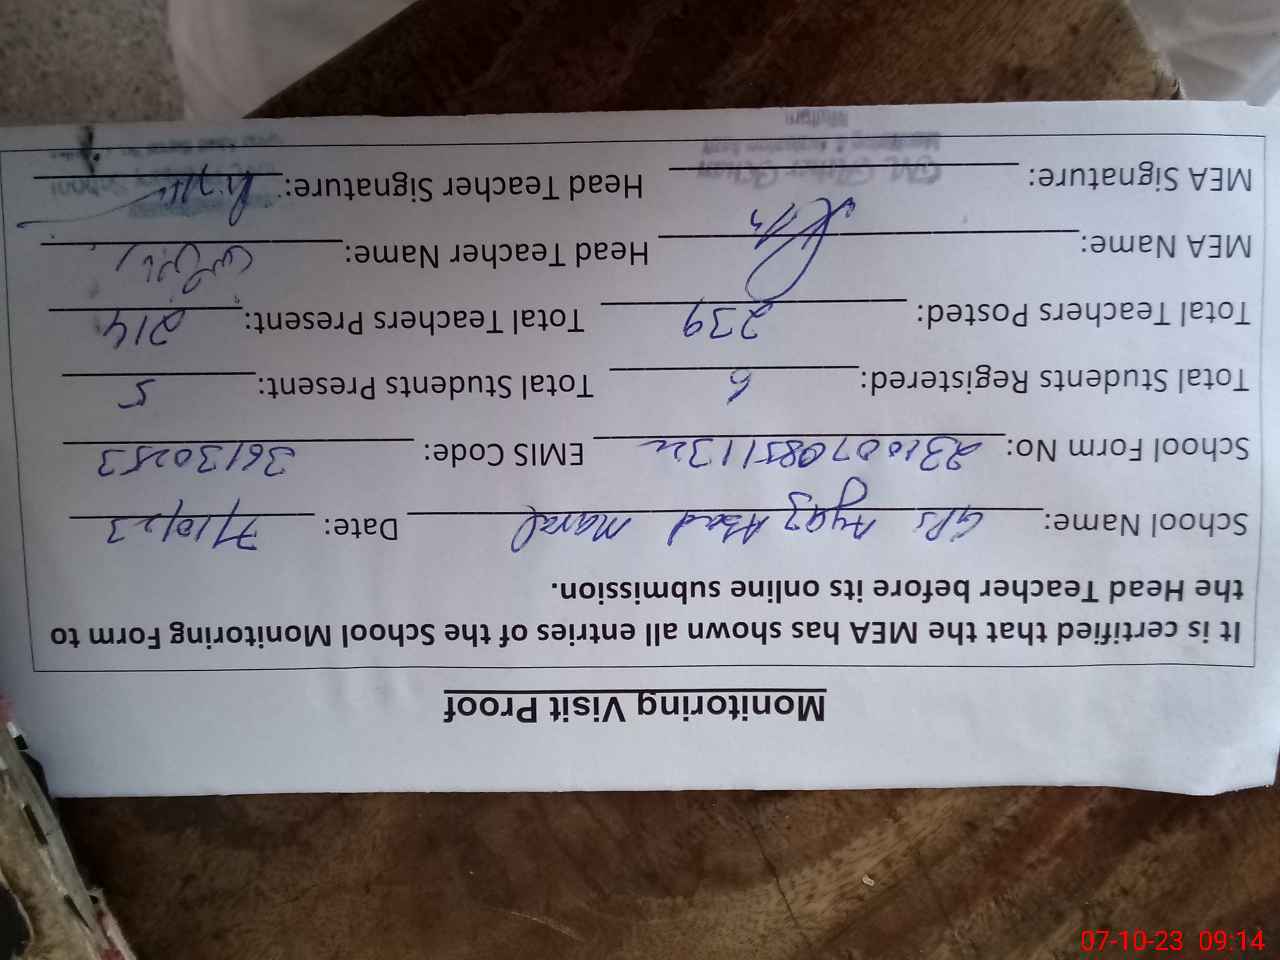 Monitoring Visit Proof
It is certified that the MEA has shown all entries of the School Monitoring Form to
the Head Teacher before its online submission.
School Name: GPS Ayaz Abad Maral Date: 7/10/23
School Form No: EMIS Code: 36130253
Total Students Registered: 6 Total Students Present: 5
Total Teachers Posted: 239 Total Teachers Present: 214
MEA Name: Head Teacher Name:
MEA Signature: Head Teacher Signature:
07-10-23 09:14